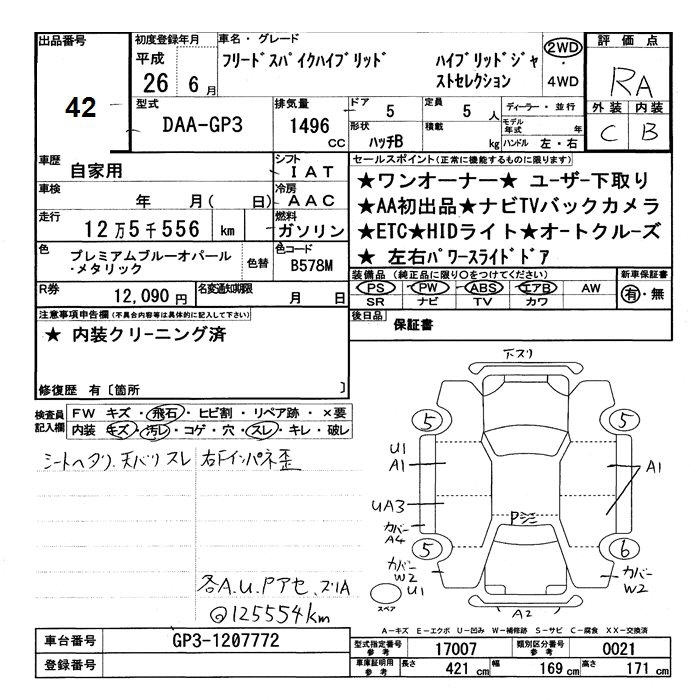 出品番号
42
初度登録年月
平成
26 6 月
車名・グレード
フリードスパイクハイブリッド ハイブリッドジャ
ストセレクション
2WD
・
4WD
評価点
RA
外装 内装
C B
型式
DAA-GP3
排気量
1496
CC
ドア 5
定員 5 人
形状 ハッチB
積載 kg
ディーラー・並行
モデル
年式 年
ハンドル 左・右
車歴 自家用
シフト IAT
車検 年 月( 日)
冷房 AAC
走行 12万5千556 km
燃料 ガソリン
色 プレミアムブルーオパール
・メタリック
色替
色コード
B578M
R券 12,090 円
名変通知期限 月 日
セールスポイント(正常に機能するものに限ります)
★ワンオーナー★ ユーザー下取り
★AA初出品★ナビTVバックカメラ
★ETC★HIDライト★オートクルーズ
★ 左右パワースライドドア
装備品 (純正品に限り○をつけてください)
PS ・ PW ・ ABS ・ エアB ・ AW
SR ナビ TV カワ
新車保証書
有・無
後日品 保証書
注意事項申告欄(不具合内容等は具体的に記入して下さい)
★ 内装クリーニング済
修復歴 有〔箇所 〕
検査員
記入欄
FW キズ・飛石・ヒビ割・リペア跡・×要
内装 キズ・汚レ・コゲ・穴・スレ・キレ・破レ
シートヘタリ、天バリスレ 右Fインパネ歪
各A.U.Pアセ、ズリA
@125554km
下スリ
5 5
U1
A1 A1
UA3
カバー
A4
5 6
カバー
W2
U1
カバー
W2
スペア
A2
A-キズ E-エクボ U-凹み W-補修跡 S-サビ C-腐食 XX-交換済
車台番号 GP3-1207772
登録番号
型式指定番号
参考
17007
類別区分番号
参考
0021
車庫証明用
参考
長さ 421 cm 幅 169 cm 高さ 171 cm